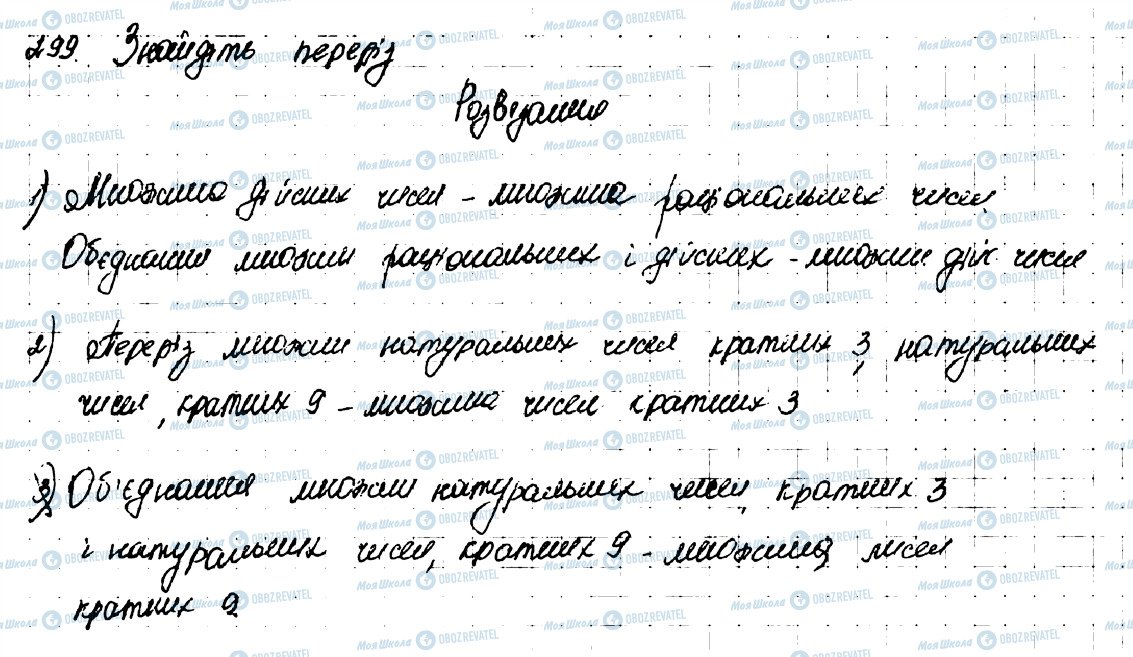 299. Знайдіть переріз
Розв'язання
1) Множина дійсних чисел – множина раціональних чисел.
Об'єднання множин раціональних і дійсних – множин дійс чисел
2) Переріз множин натуральних чисел кратних 3, натуральних
чисел, кратних 9 – множина чисел кратних 3
3) Об'єднання множин натуральних чисел, кратних 3
і натуральних чисел, кратних 9 – множина чисел
кратних 9